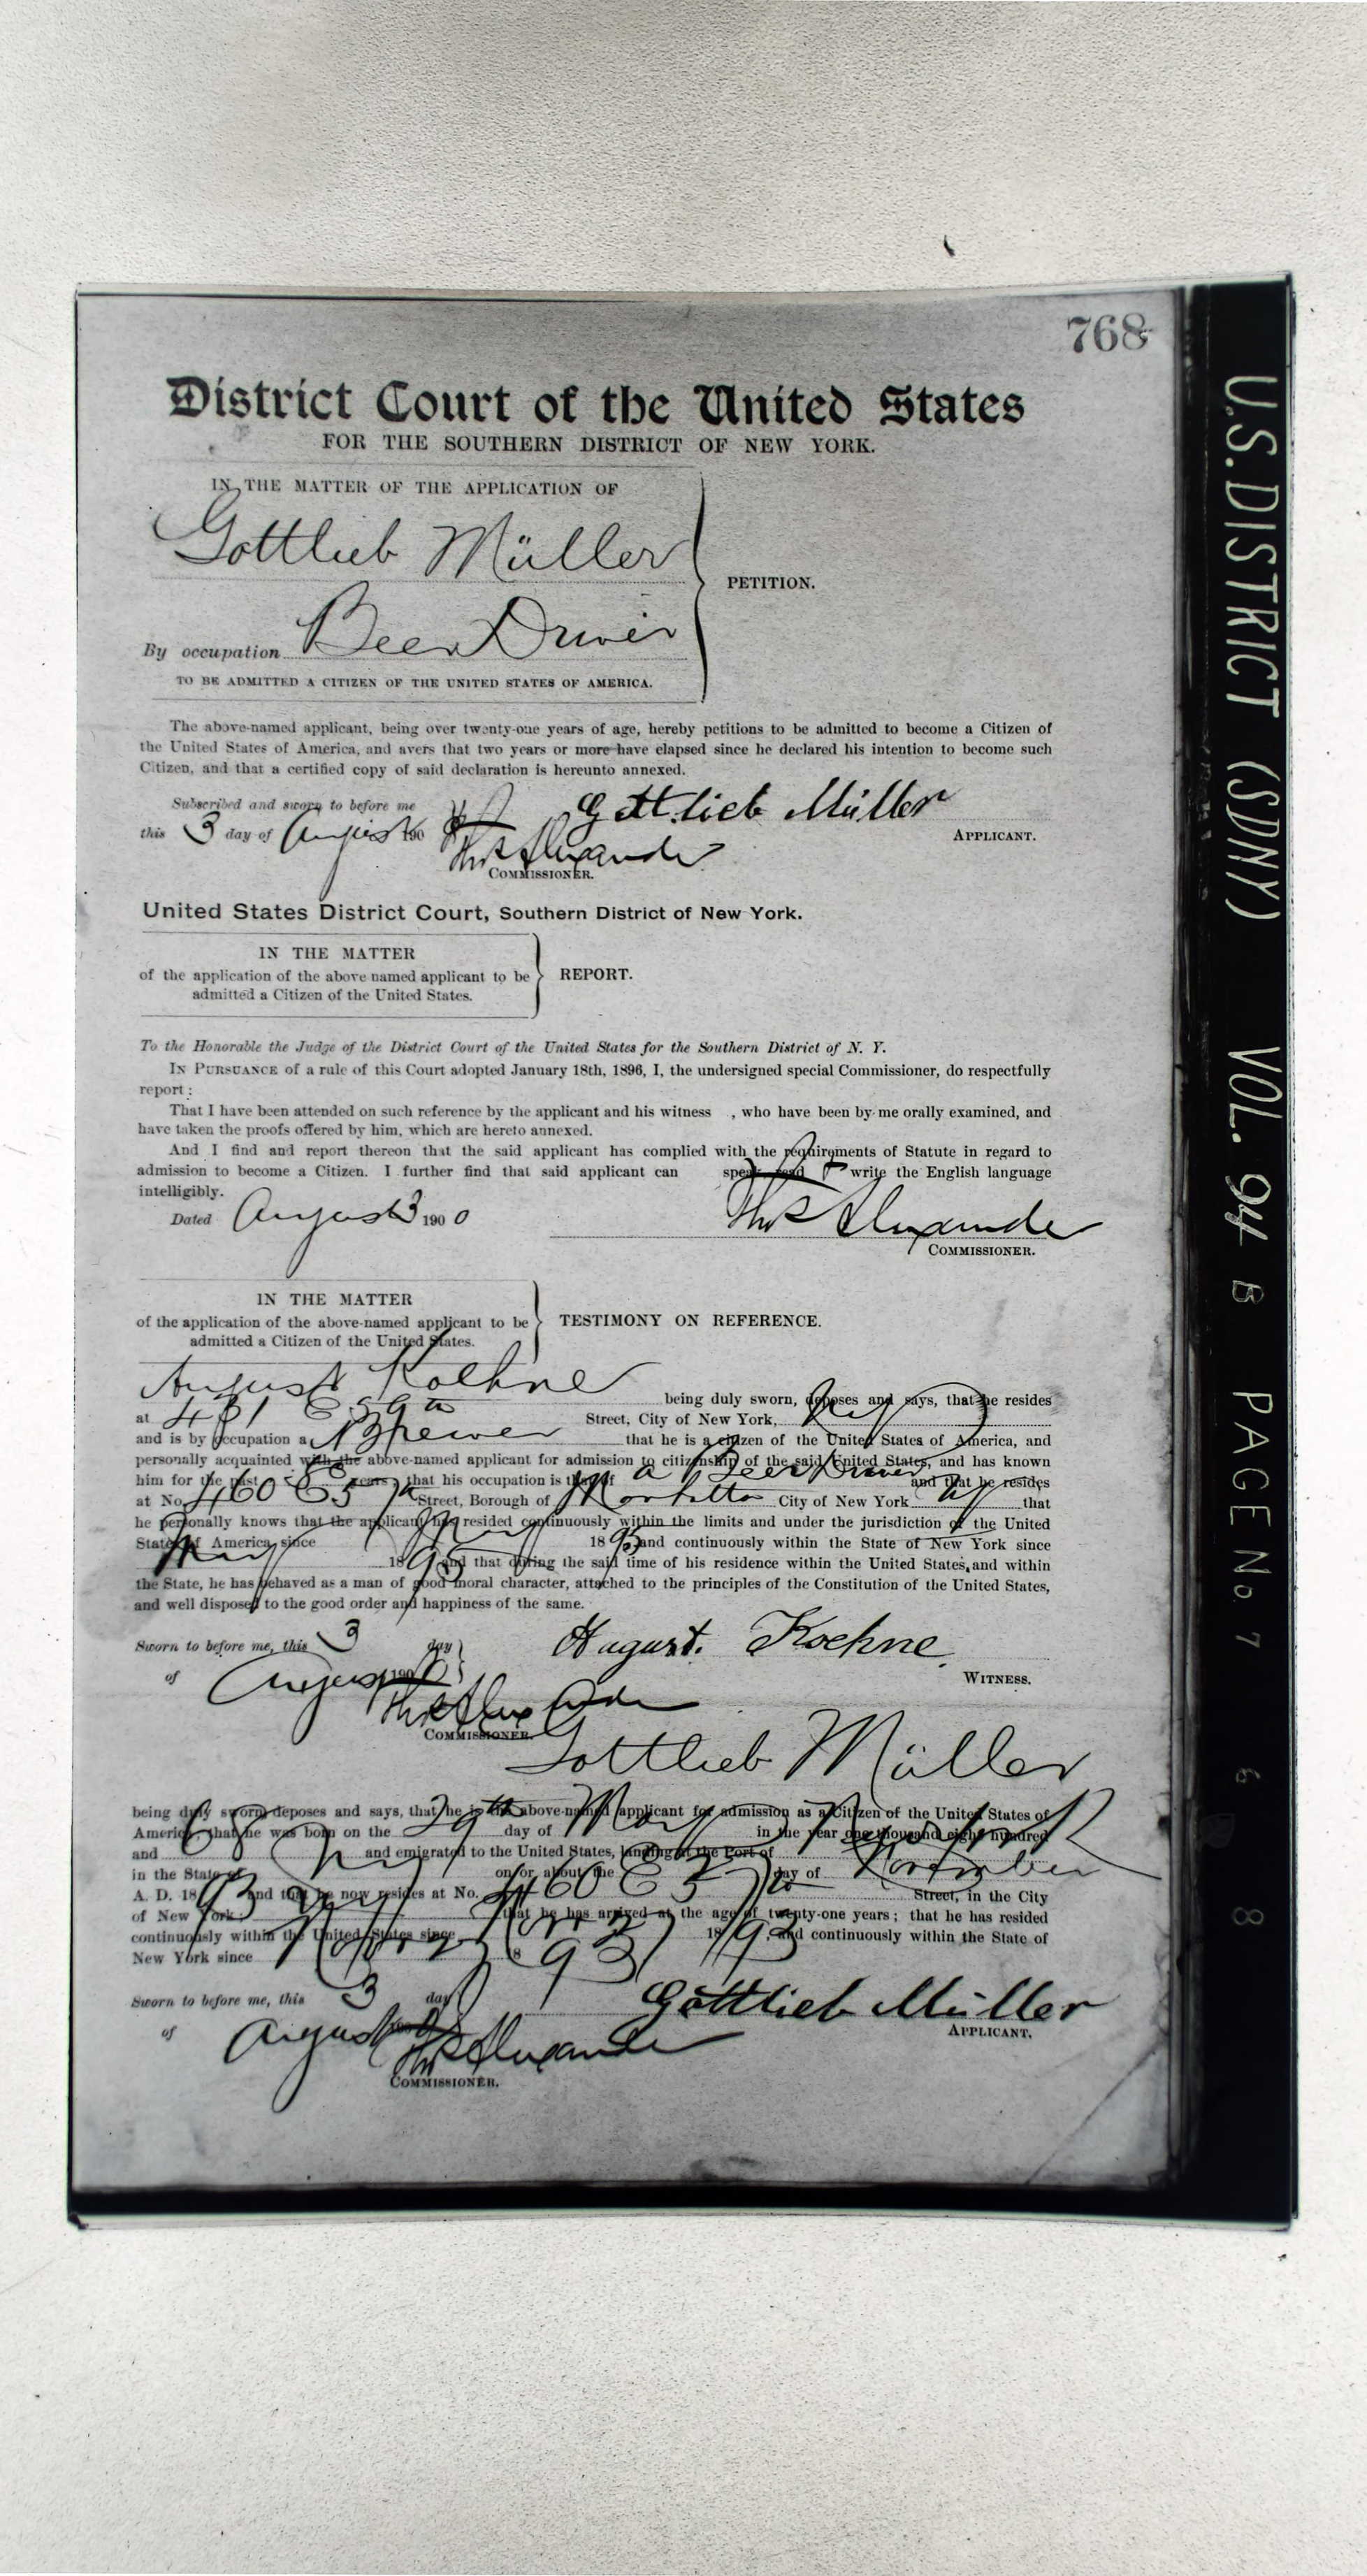 768
District Court of the United States
FOR THE SOUTHERN DISTRICT OF NEW YORK.
IN THE MATTER OF THE APPLICATION OF
Gottlieb Müller
PETITION.
By occupation Beer Driver
TO BE ADMITTED A CITIZEN OF THE UNITED STATES OF AMERICA.
The above-named applicant, being over twenty-one years of age, hereby petitions to be admitted to become a Citizen of
the United States of America, and avers that two years or more have elapsed since he declared his intention to become such
Citizen, and that a certified copy of said declaration is hereunto annexed.
Subscribed and sworn to before me
Gottlieb Müller
this 3 day of August 190
APPLICANT.
Thos Alexander
COMMISSIONER.
United States District Court, Southern District of New York.
IN THE MATTER
of the application of the above named applicant to be
admitted a Citizen of the United States.
REPORT.
To the Honorable the Judge of the District Court of the United States for the Southern District of N. Y.
IN PURSUANCE of a rule of this Court adopted January 18th, 1896, I, the undersigned special Commissioner, do respectfully
report :
That I have been attended on such reference by the applicant and his witness , who have been by me orally examined, and
have taken the proofs offered by him, which are hereto annexed.
And I find and report thereon that the said applicant has complied with the requirements of Statute in regard to
admission to become a Citizen. I further find that said applicant can speak read write the English language
intelligibly.
Dated August 3 1900
Thos Alexander
COMMISSIONER.
IN THE MATTER
of the application of the above-named applicant to be
admitted a Citizen of the United States.
TESTIMONY ON REFERENCE.
August Koehne being duly sworn, deposes and says, that he resides
at 431 E 59th Street, City of New York, NY
and is by occupation a Brewer that he is a citizen of the United States of America, and
personally acquainted with the above-named applicant for admission to citizenship of the said United States, and has known
him for the past years, that his occupation is that of a Beer Driver and that he resides
at No. 460 E 57th Street, Borough of Manhattan City of New York NY that
he personally knows that the applicant has resided continuously within the limits and under the jurisdiction of the United
States of America since May 1895 and continuously within the State of New York since
May 1895 and that during the said time of his residence within the United States, and within
the State, he has behaved as a man of good moral character, attached to the principles of the Constitution of the United States,
and well disposed to the good order and happiness of the same.
Sworn to before me, this 3 day
August. Koehne
of August 1900
WITNESS.
Thos Alexander
COMMISSIONER.
Gottlieb Müller
being duly sworn deposes and says, that he is the above-named applicant for admission as a Citizen of the United States of
America, that he was born on the 29th day of May in the year one thousand eight hundred
and 68 and emigrated to the United States, landing at the Port of New York
in the State of NY on or about the day of November
A. D. 1893 and that he now resides at No. 460 E 57th Street, in the City
of New York, NY that he has arrived at the age of twenty-one years; that he has resided
continuously within the United States since Nov 1893, and continuously within the State of
New York since Nov 1893
Sworn to before me, this 3 day
Gottlieb Müller
of August 1900
APPLICANT.
Thos Alexander
COMMISSIONER.
U.S. DISTRICT (SDNY) VOL. 94 B PAGE No 768